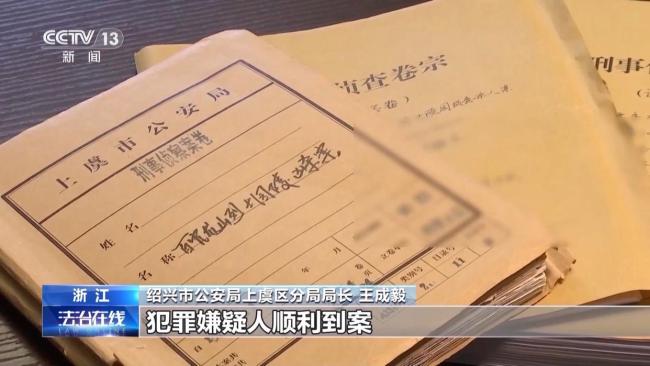 CCTV 13
新闻
上虞市公安局
刑事侦察案卷
姓名
名称 百官龙山烈士陵
年 月
类别号
目录号
11
侦查卷宗
刑事
浙江
绍兴市公安局上虞区分局局长 王成毅
法治在线
犯罪嫌疑人顺利到案